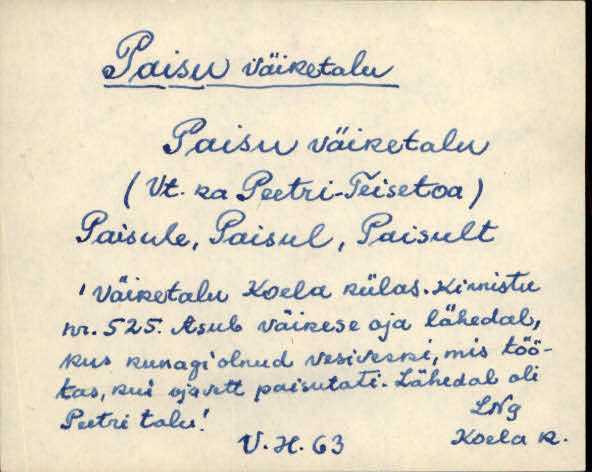 Paisu väiketalu
Paisu väiketalu
(Vt. ka Peetri-Teisetoa)
Paisule, Paisul, Paisult
'Väiketalu Koela külas. Kinnistu
nr. 525. Asub väikese oja lähedal,
kus kunagi olnud vesiveski, mis töö-
tas, kui ojavett paisutati. Lähedal oli
Peetri talu.'
LNg
V.H. 63
Koela k.